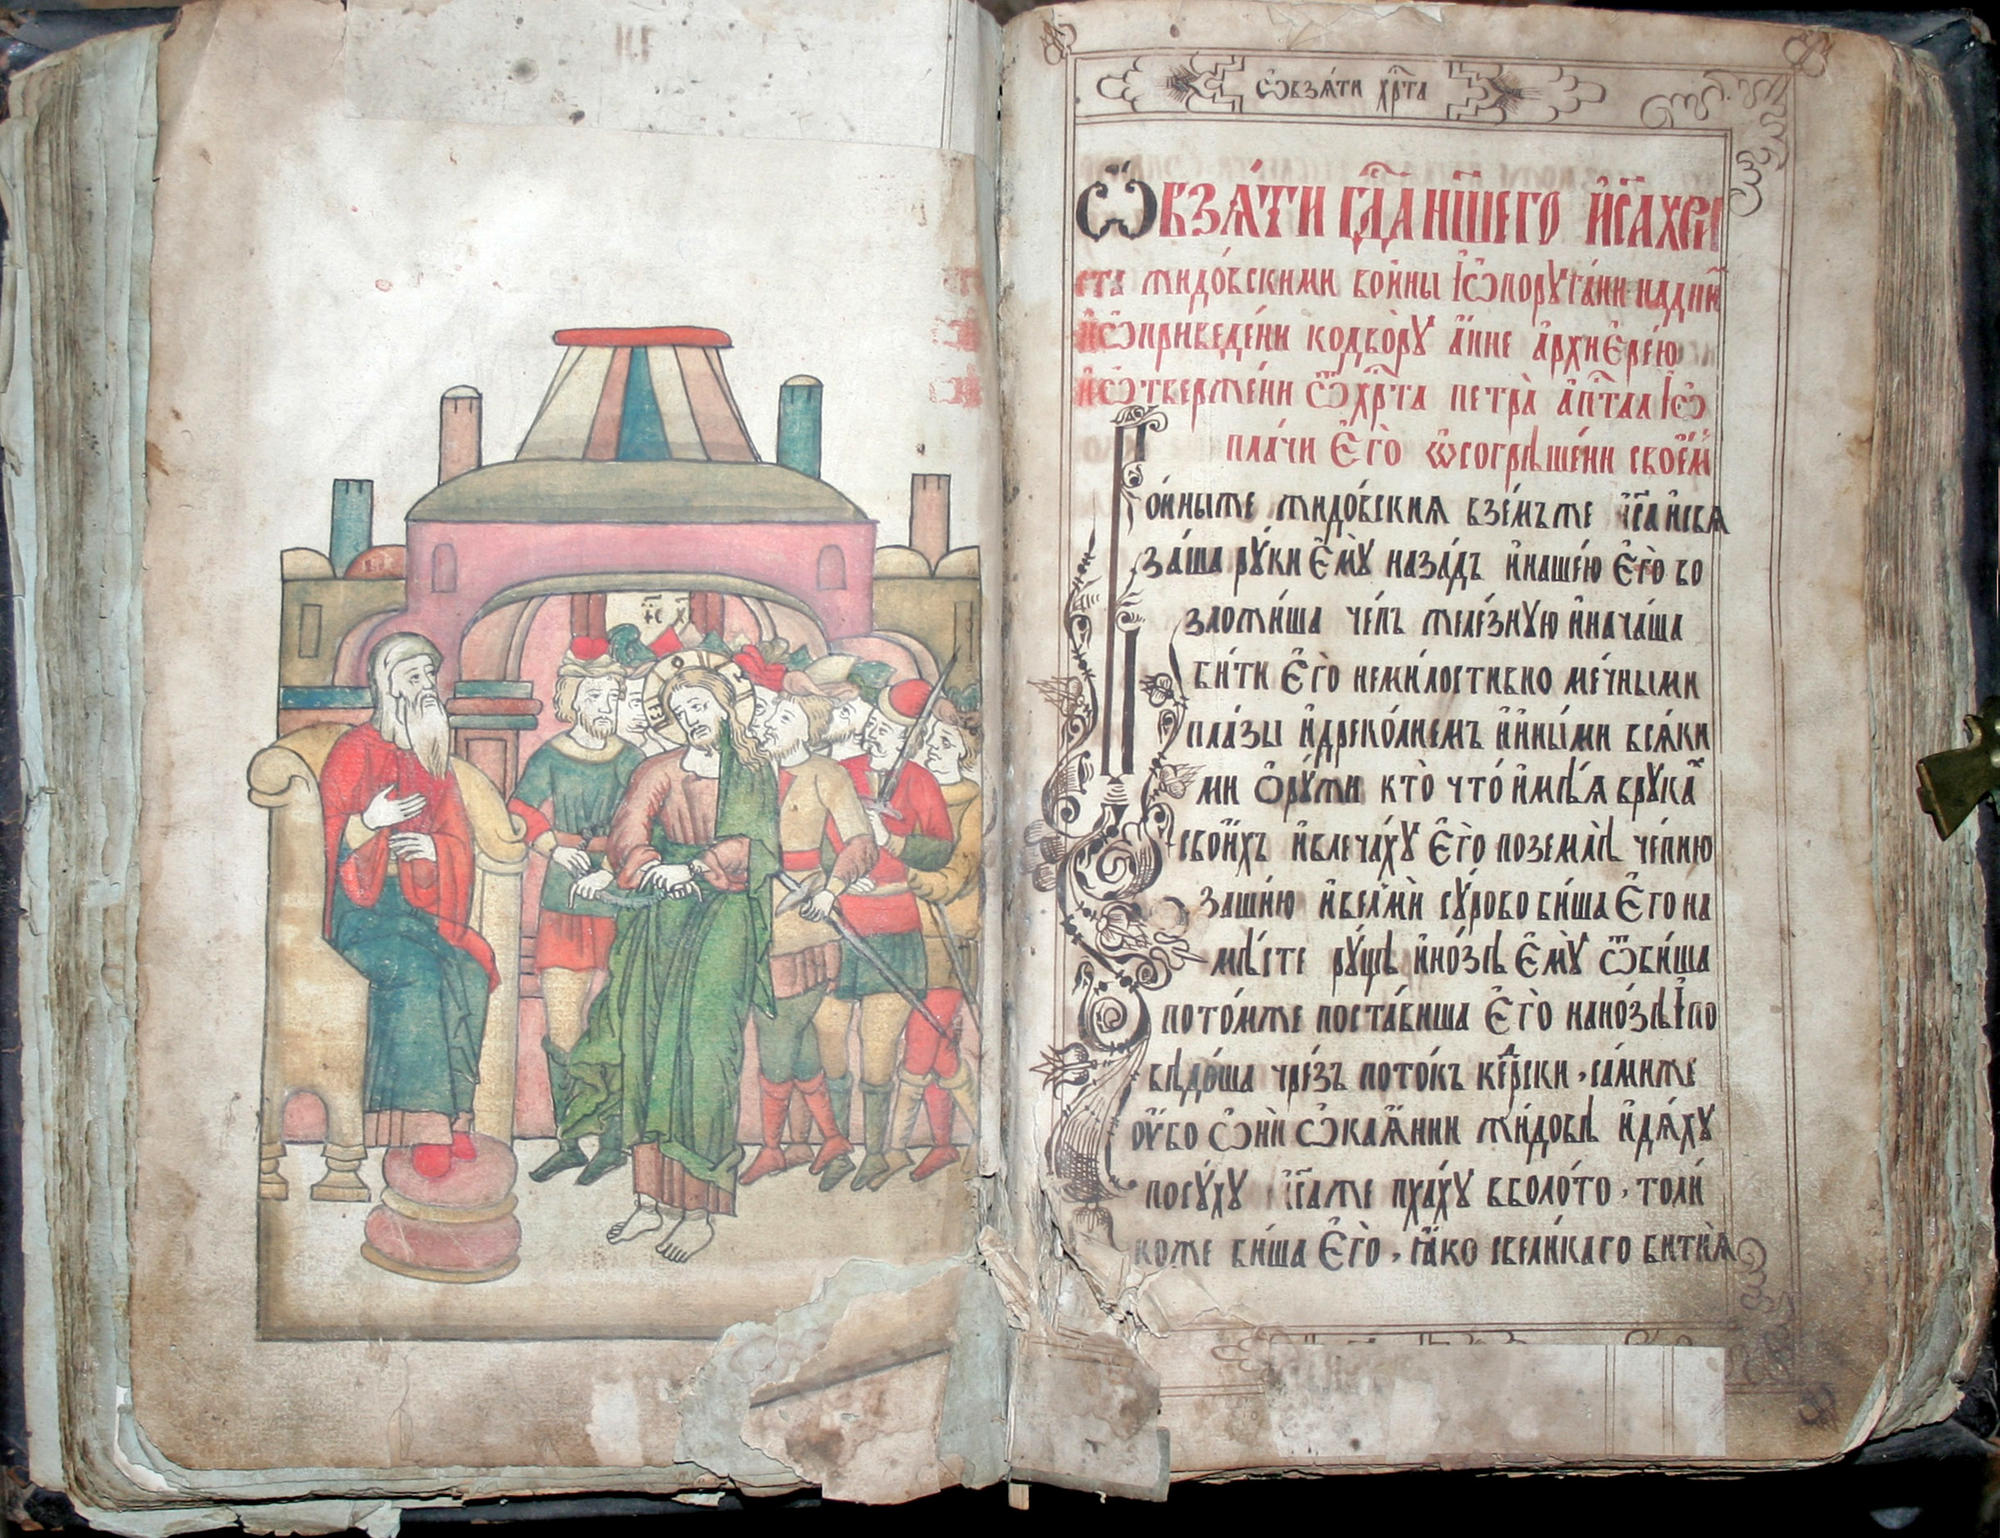 І҃С Х҃
ѽвзѧ́ти хрⷭ҇та
Ѽ взѧ́ти гдⷭ҇а на́шего и҆с҃а хрі
ста жидо́вскими во́ины і҆ ѽ пору́гании над ни́мъ
и҆ ѽ приведе́нии ко двору̀ а҆́нне а҆рхиере́ю
и҆ ѽ тверже́нии ѿ хрⷭ҇та петра̀ а҆пⷭ҇тла і҆ ѽ
пла́чи є҆го̀ ѽ согрѣше́нии свое́мъ
о́ины же жидо́вския взе́мъ же і҆с҃а и҆ свѧ
за́ша ру́ки є҆мꙋ̀ наза́дъ и҆ на ше́ю є҆го̀ во
зложи́ша че́пь желе́зную и҆ нача́ша
би́ти є҆го̀ неми́лостивно ме́чными
пла́зы и҆ дреко́лиемъ и҆ и҆ны́ми всѧ́ки
ми ѻ҆ру́жи кто̀ что́ и҆мѣ́ѧ в рука́х
свои́хъ и҆ влеча́ху є҆го̀ по землѣ̀ че́пию
за ши́ю и҆ велмѝ су́рово би́ша є҆го на
мѣ́сте ру́цѣ и҆ но́зѣ є҆мꙋ̀ ѿби́ша
пото́мже поста́виша є҆го̀ на но́зѣ і҆ по
вѣдо́ша чре́зъ пото́къ ке́дрски, са́ми же
ѹ҆́бо ѽнѝ ѽкаѧ́ннии жи́довѣ и҆дѧ́ху
по су́ху і҆с҃а же пха́ху в боло́то, толи́
коже би́ша є҆го̀, ꙗ҆́ко ѿ вели́каго бития̀